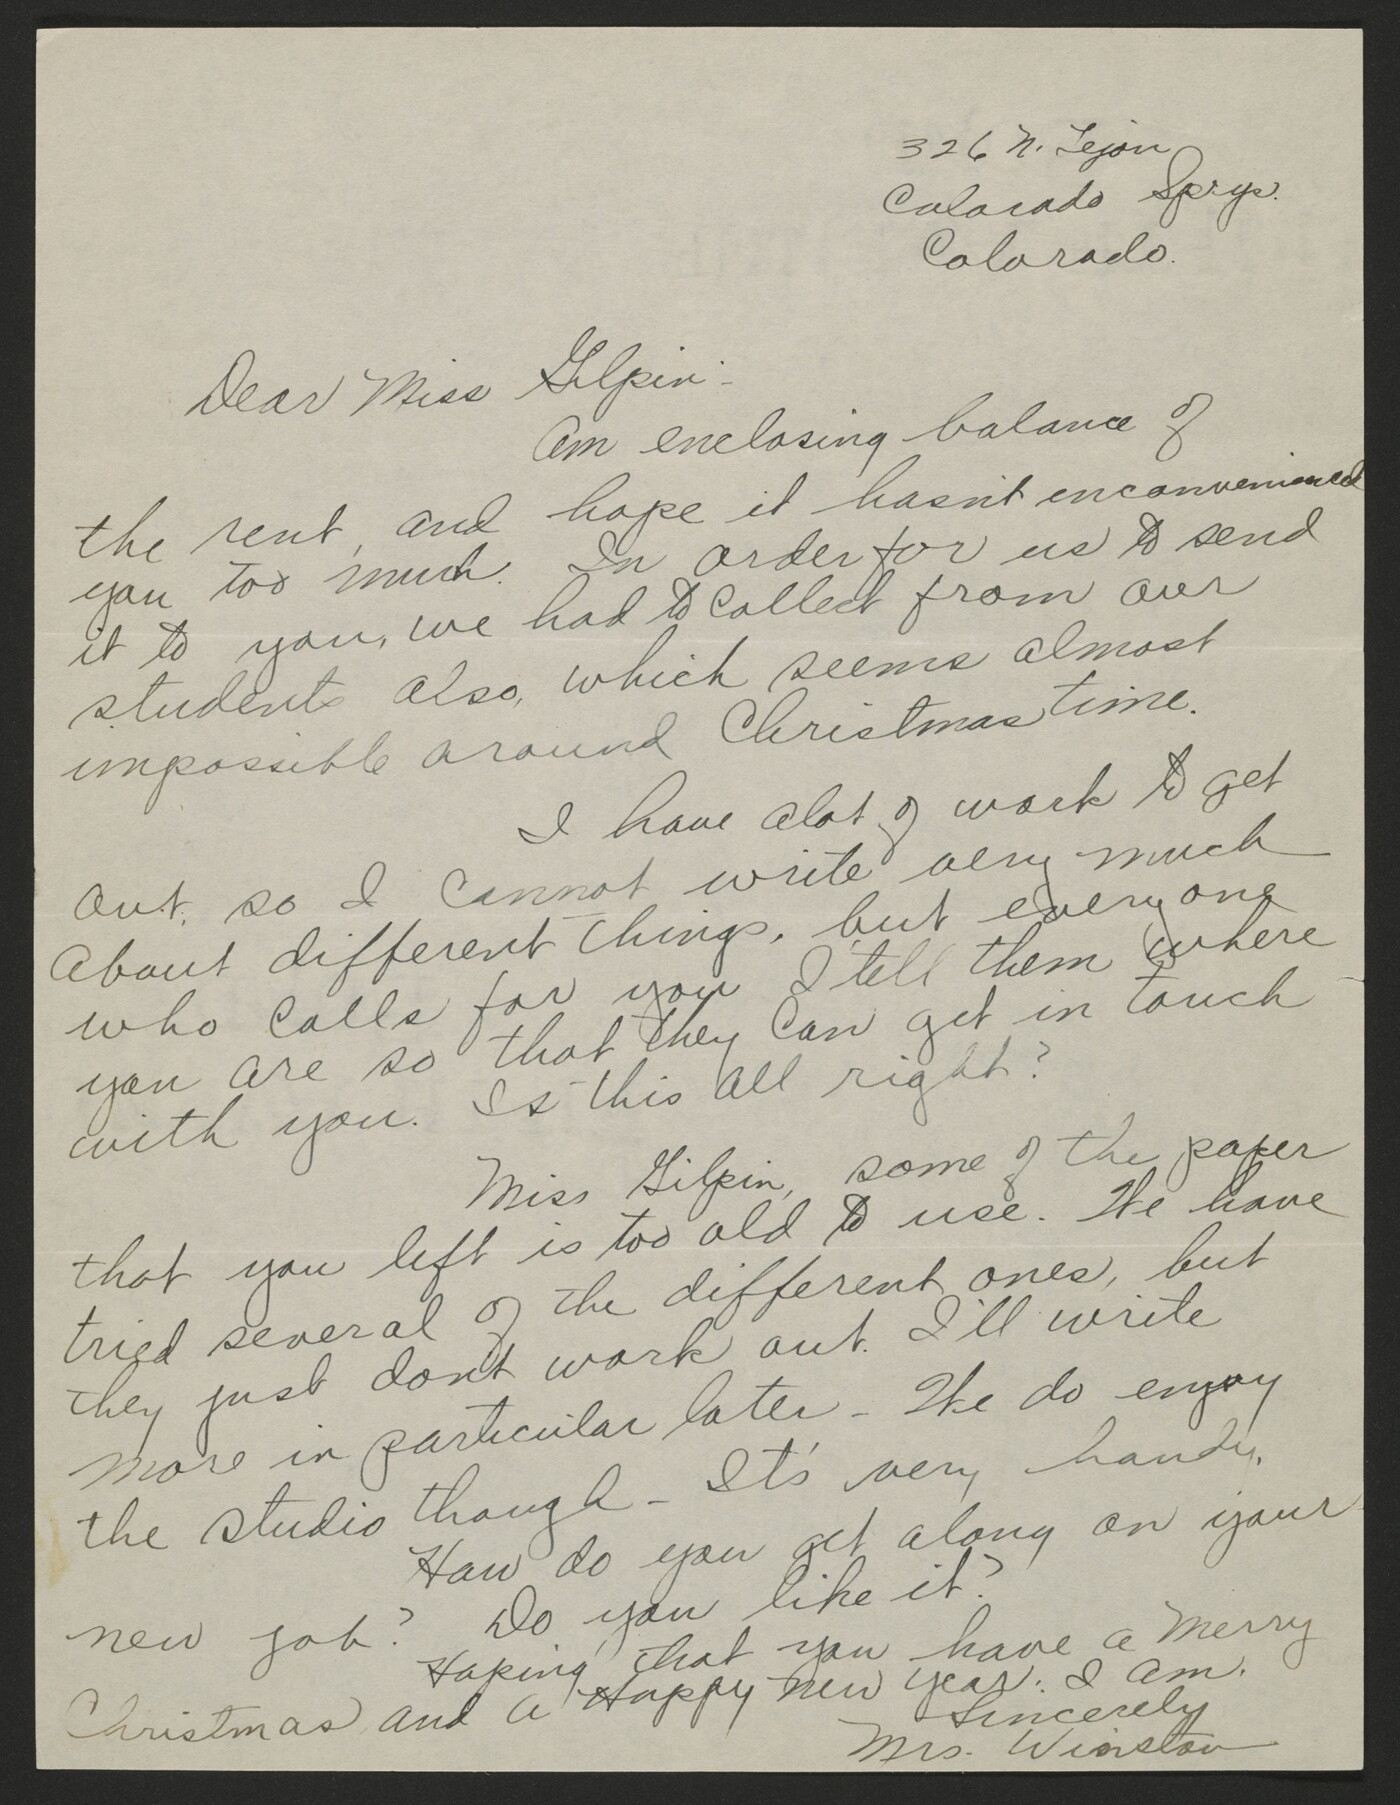 326 N. Tejon
Colorado Sprgs.
Colorado.
Dear Miss Gilpin:-
Am enclosing balance of
the rent, and hope it hasn't inconvenienced
you too much. In order for us to send
it to you, we had to collect from our
students also, which seems almost
impossible around Christmas time.
I have alot of work to get
out, so I cannot write very much
about different things, but everyone
who calls for you I tell them where
you are so that they can get in touch
with you. Is this all right?
Miss Gilpin, some of the paper
that you left is too old to use. We have
tried several of the different ones, but
they just don't work out. I'll write
more in particular later - We do enjoy
the studio though - It's very handy.
How do you get along on your
new job? Do you like it?
Hoping that you have a Merry
Christmas and a Happy New Year. I am.
Sincerely
Mrs. Winston